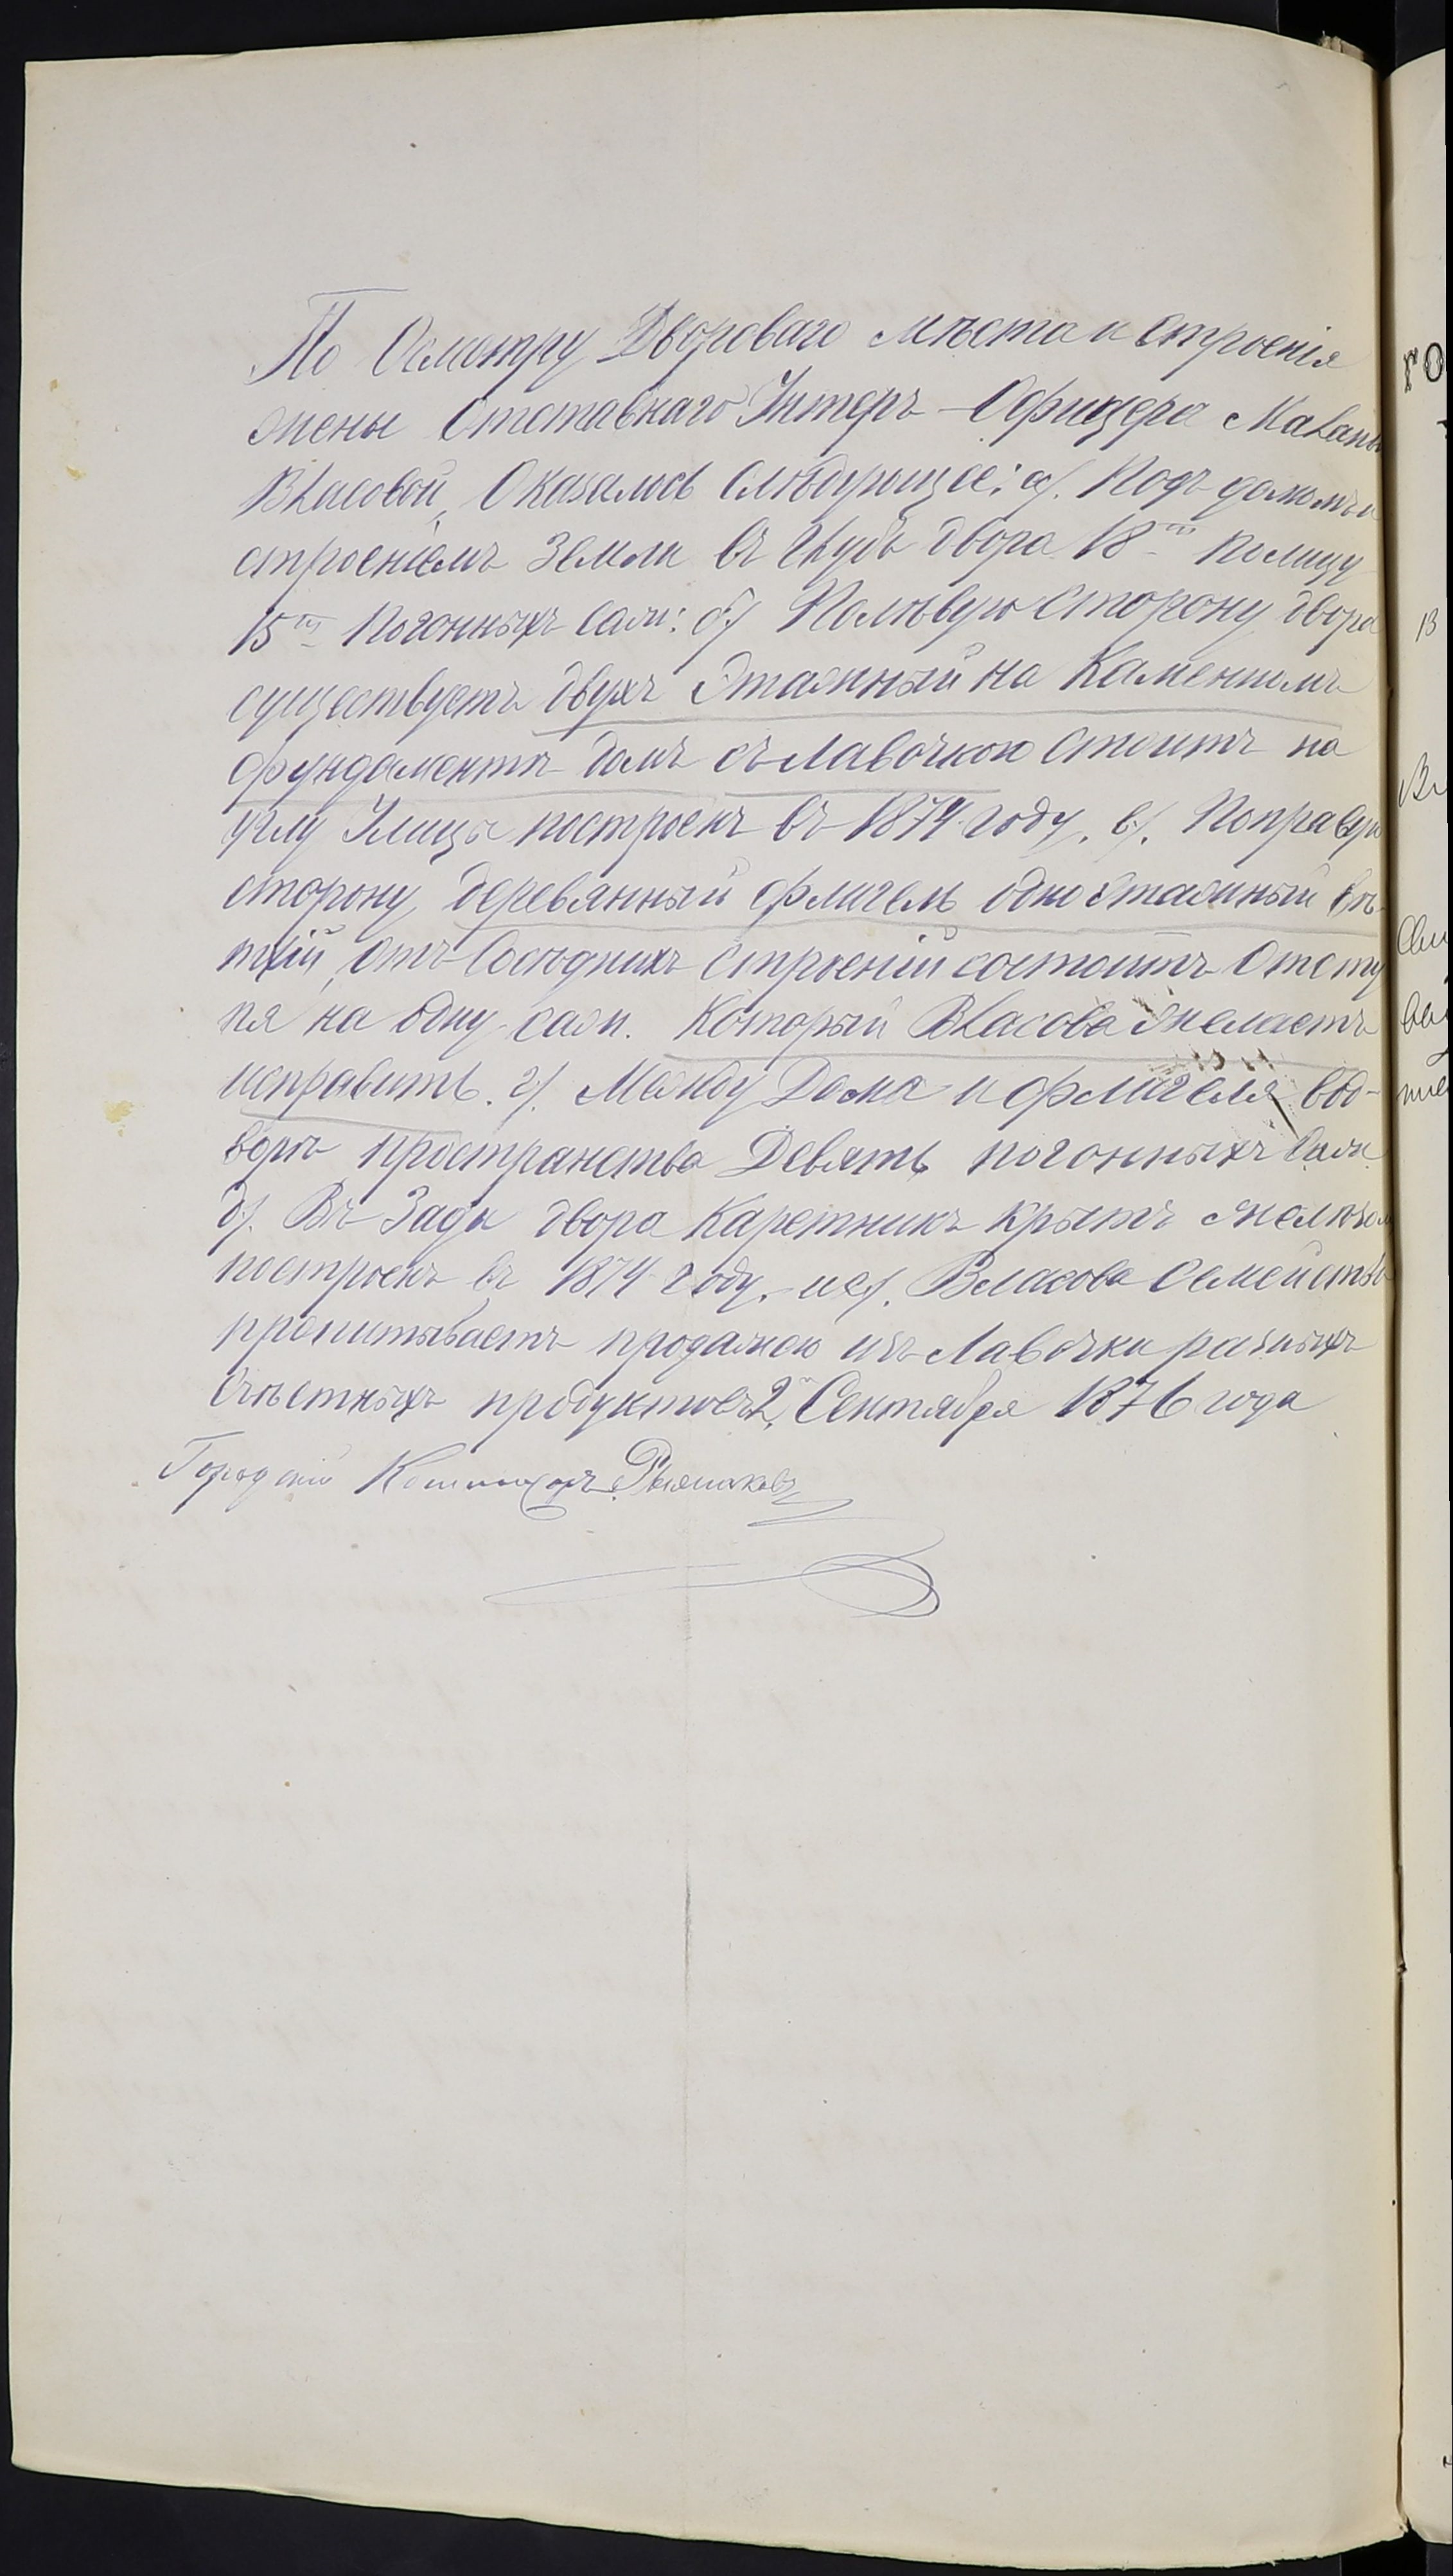 По Осмотру Двороваго мѣста и строенія
жены Отставнаго Унтеръ-Офицера Малань
Власовой, Оказалось Слѣдующее: а/. Подъ домомъ и
строеніемъ Земли въ глубь двора 18ти Полицу
15ти Погонныхъ саж: б/ Полѣвую Сторону двора
существуетъ двухъ Этажный на Каменномъ
фундаментѣ домъ съ Лавочкою Стоитъ на
углу Улицы построенъ въ 1874 году. в/. Поправую
сторону, деревянный флигель одно Этажный вѣ-
тхій, отъ Сосѣднихъ Строеній состоитъ Отсту
пя на одну саж. Который Власова Желаетъ
исправить. г/. Между Дома и флигеля вдо-
воръ пространства Девять погонныхъ Саж.
д/. Въ Заду двора Каретникъ крытъ желѣзом
построенъ въ 1874 году. и е/. Власова Семейство
пропитываетъ продажею изъ Лавочки разныхъ
Съѣстныхъ продуктовъ 2го Сентября 1876 года
Городскій
ro
В
Вл